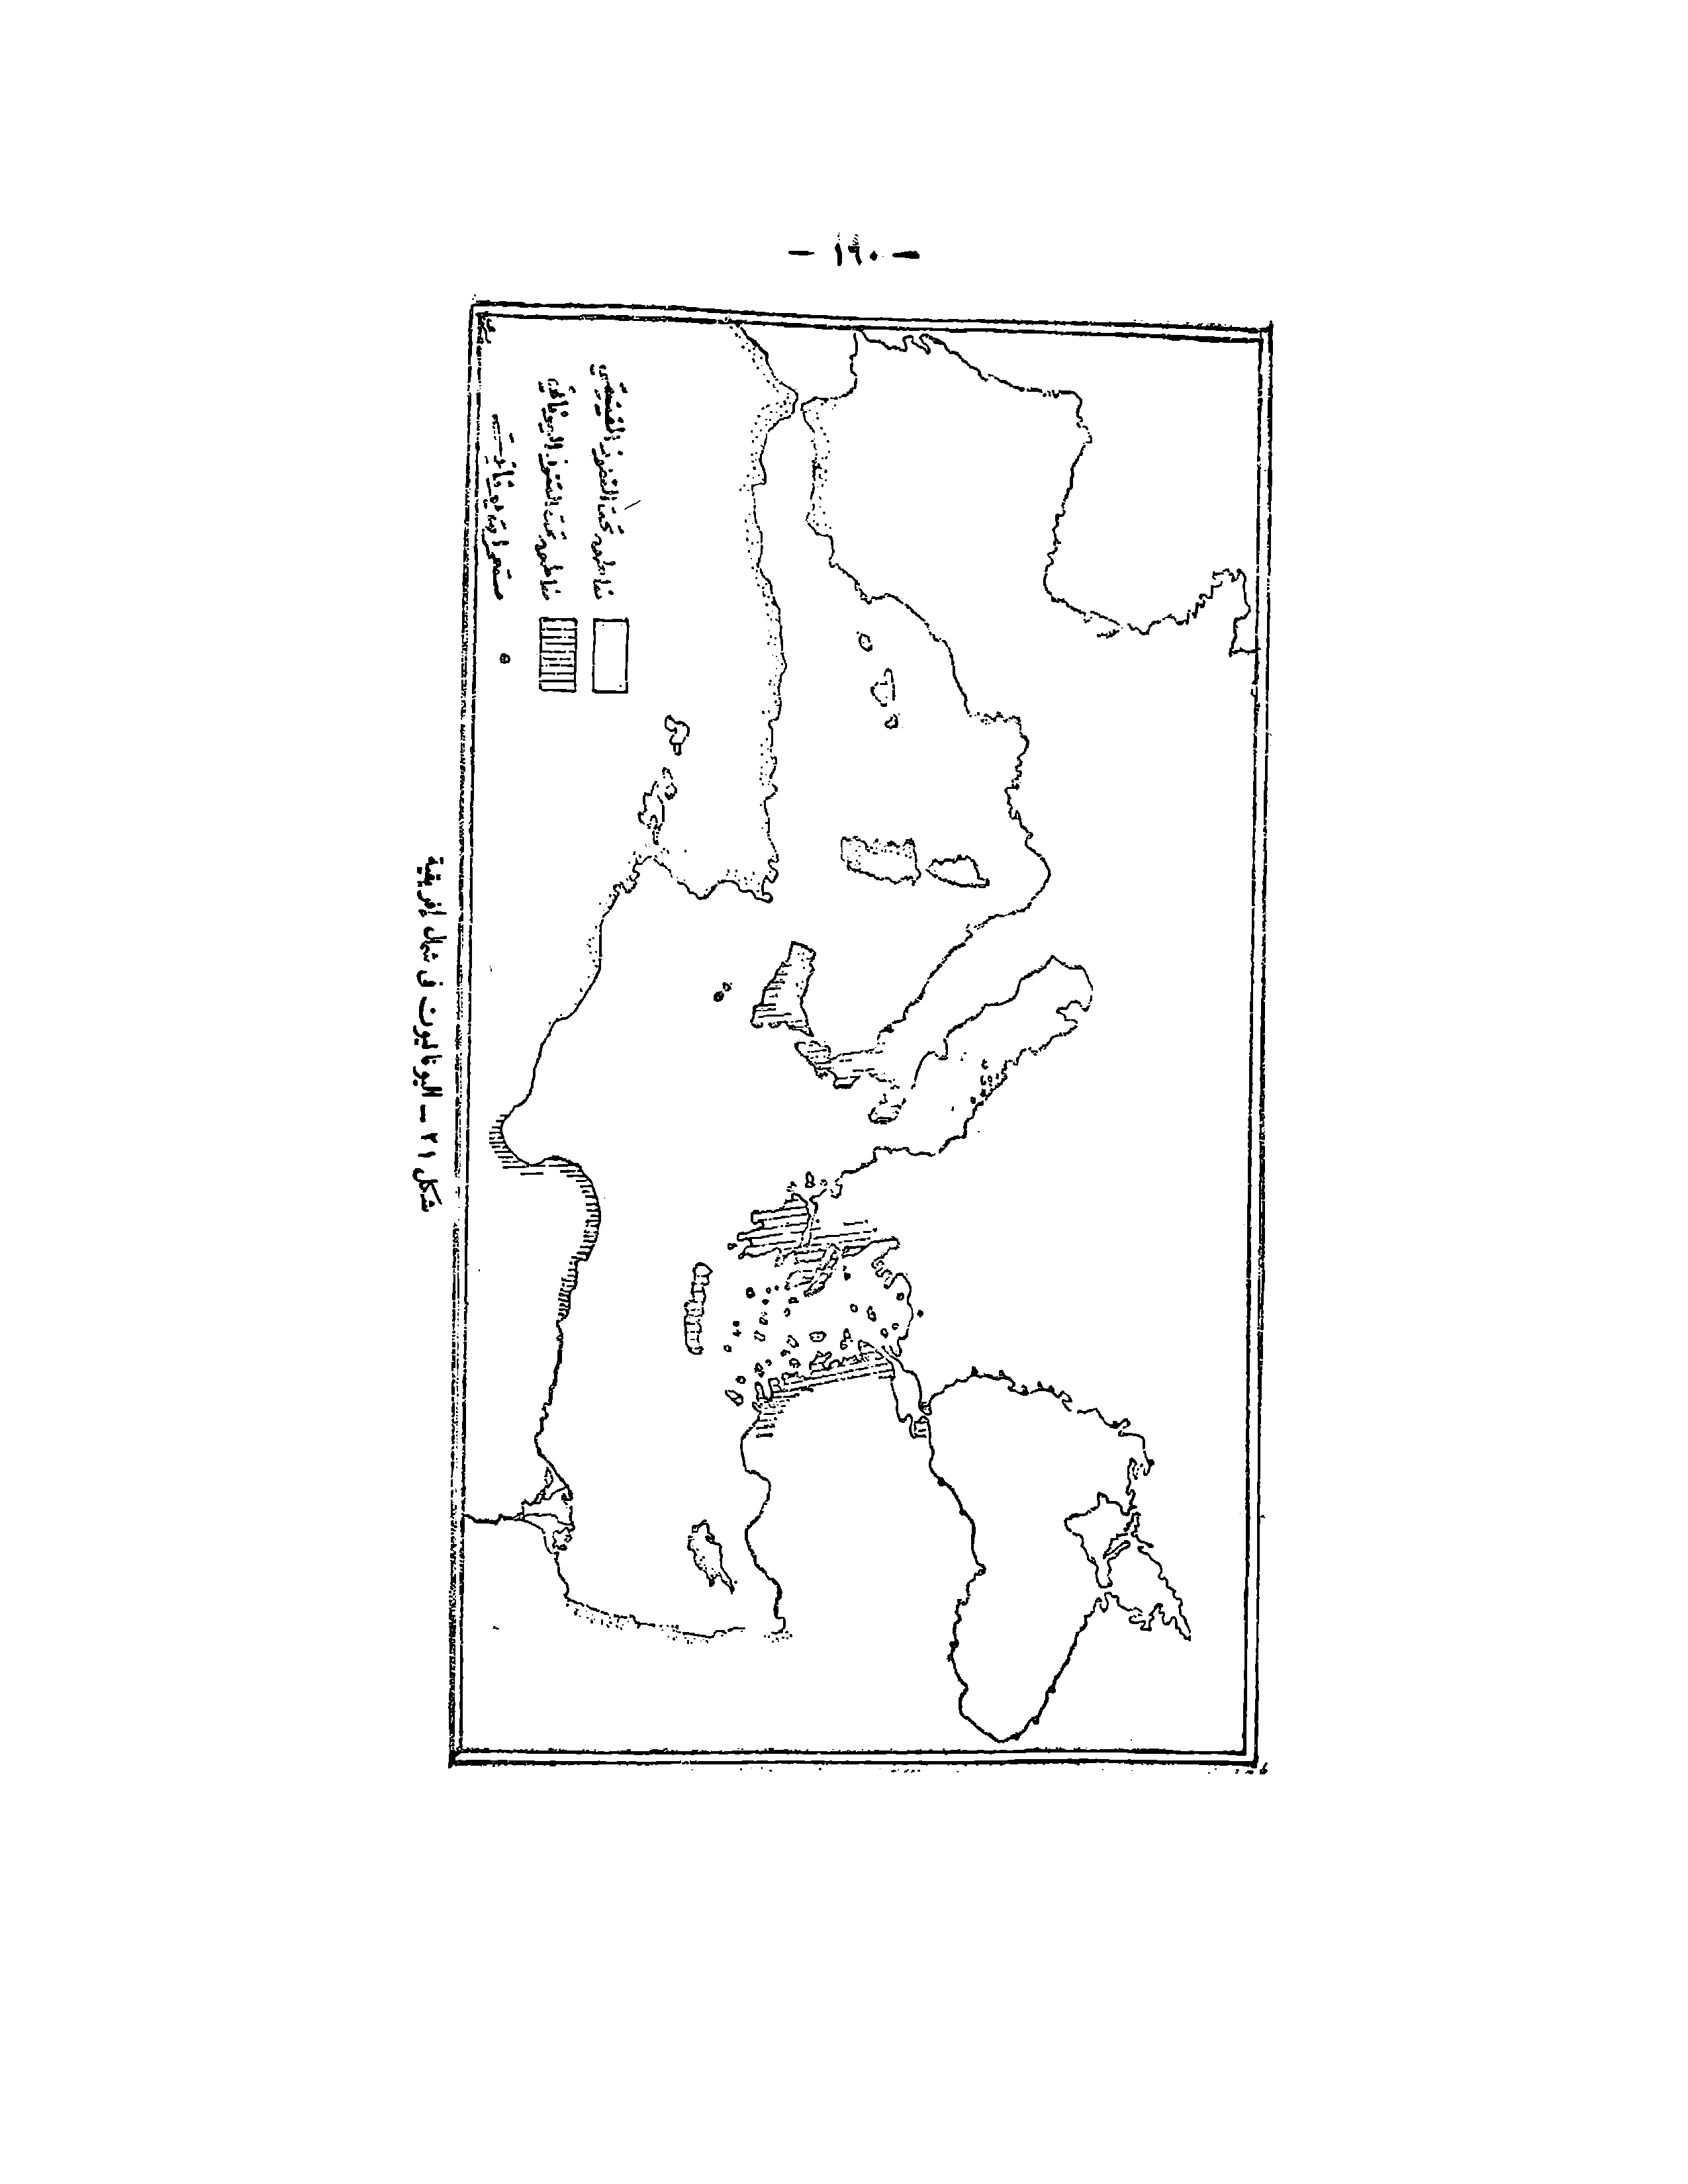 — ١٩٠ —
مناطق تحت النفوذ الفينيقي
مناطق تحت النفوذ اليوناني
مستعمرات يونانية
شكل ٢١ — اليونانيون في شمال إفريقية